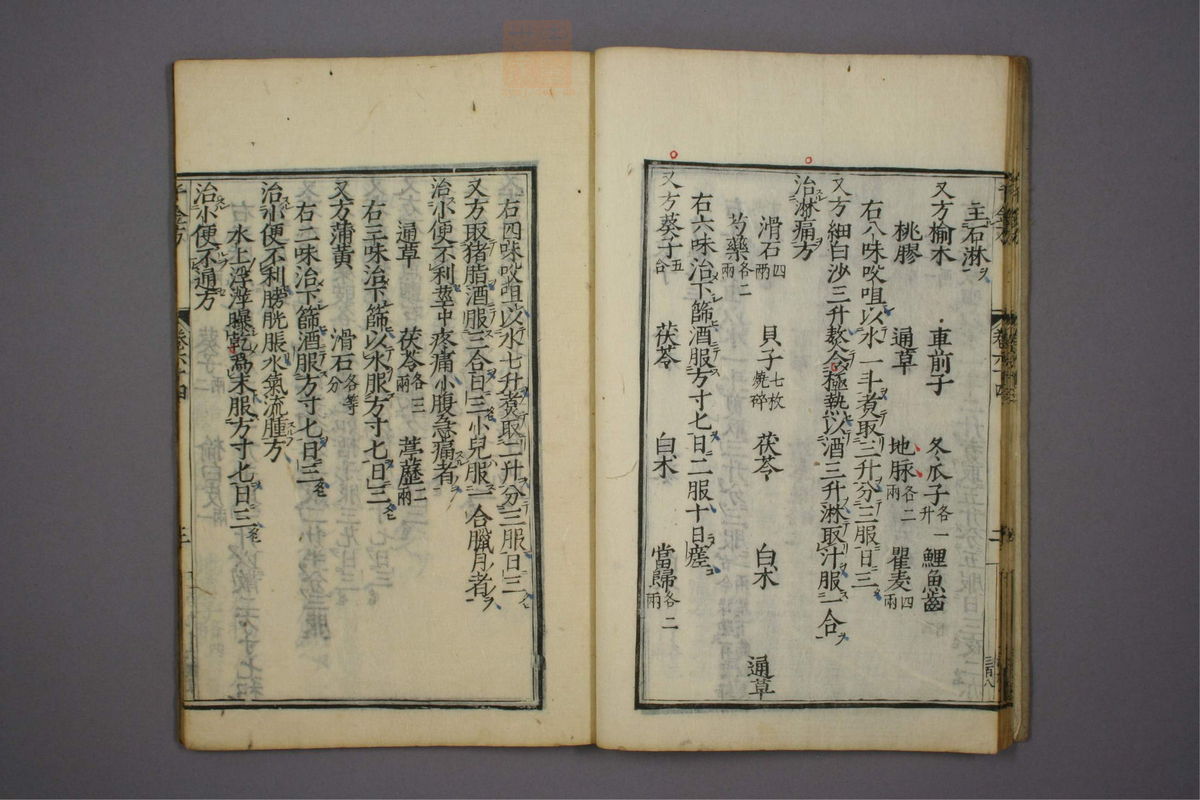 主石淋
又方榆木 車前子 冬瓜子各一升 鯉魚齒
桃膠 通草 地脉各二兩 瞿麦四兩
右八味㕮咀以水一斗煮取三升分三服日三
又方細白沙三升熬令極熱以酒三升淋取汁服一合
治淋痛方
滑石四兩 貝子七枚燒碎 茯苓 白木 通草
芍藥各二兩
右六味治下篩酒服方寸七日二服十日瘥
又方葵子五合 茯苓 白木 當歸各二兩
右四味㕮咀以水七升煮取二升分三服日三
又方取猪脂酒服三合日三小兒服一合臘月者
治小便不利莖中疼痛小腹急痛者
通草 茯苓各三兩 葶藶二兩
右三味治下篩以水服方寸七日三
又方蒲黄 滑石各等分
右二味治下篩酒服方寸七日三
治小便不利膀胱脹水氣流腫方
水上浮萍曝乾爲末服方寸七日三
治小便不通方
千金方 卷六十四 三
三百八